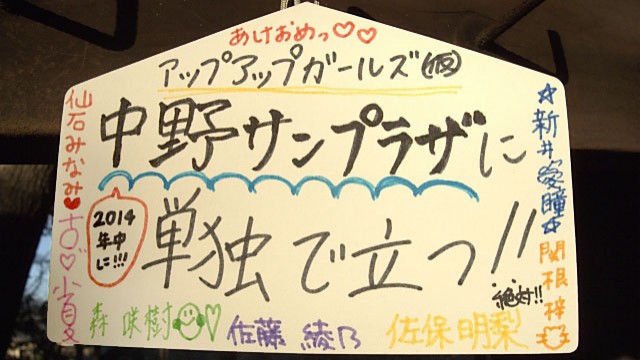 あけおめっ♡♡
アップアップガールズ(仮)
中野サンプラザに
2014年中に!!!
単独で立つ!!
絶対!!
仙石みなみ♥
古川小夏
森咲樹♡
佐藤綾乃
佐保明梨
関根梓
☆新井愛瞳☆